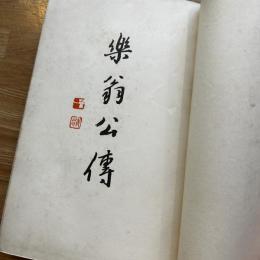 樂翁公傳